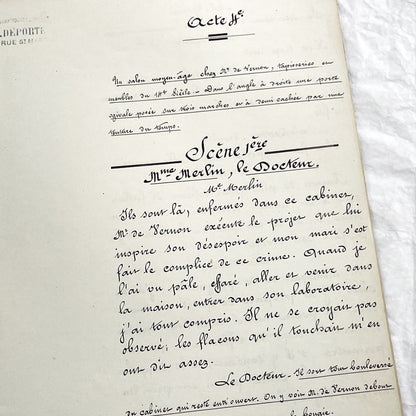 DEPORTE
RUE ST M
Acte 4e
Un salon moyen-âge chez Mr de Vernon, tapisseries et
meubles du 14e Siècle. Dans l'angle à droite une porte
ogivale posée sur trois marches et à demi cachée par une
tenture du temps.
Scène 1ère
Mme Merlin, le Docteur.
Me Merlin
Ils sont là, enfermés dans ce cabinet,
Mr de Vernon exécute le projet que lui
inspire son désespoir et mon mari s'est
fait le complice de ce crime. Quand je
l'ai vu pâle, effaré, aller et venir dans
la maison, entrer dans son laboratoire,
j'ai tout compris. Il ne se croyait pas
observé; les flacons qu'il touchait m'en
ont dit assez.
Le Docteur - Il sort tout bouleversé
du cabinet qui reste entr'ouvert. On y voit M. de Vernon debout
bougie.